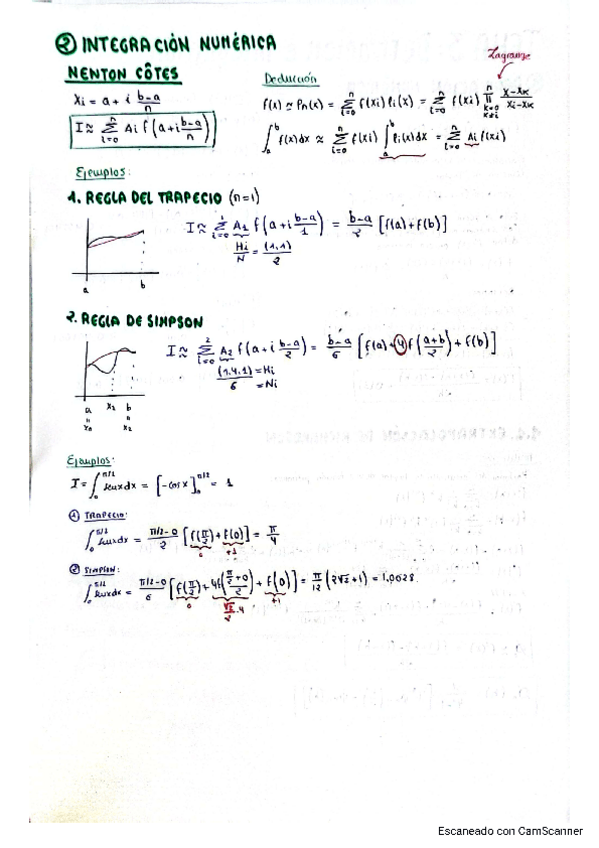 ② INTEGRACIÓN NUMÉRICA
NENTON CÔTES
xi = a + i (b-a)/n
I ≈ Σ_{i=0}^{n} Ai f(a+i (b-a)/n)
Deducción
Lagrange
f(x) ≈ Pn(x) = Σ_{i=0}^{n} f(xi) li(x) = Σ_{i=0}^{n} f(xi) Π_{k=0, k≠i}^{n} (x-xk)/(xi-xk)
∫_a^b f(x)dx ≈ Σ_{i=0}^{n} f(xi) ∫_a^b li(x)dx = Σ_{i=0}^{n} Ai f(xi)
Ejemplos:
1. REGLA DEL TRAPECIO (n=1)
I ≈ Σ_{i=0}^{1} A1 f(a+i (b-a)/1) = (b-a)/2 [f(a)+f(b)]
Hi/N = (1,1)/2
a b
2. REGLA DE SIMPSON
I ≈ Σ_{i=0}^{2} A2 f(a+i (b-a)/2) = (b-a)/6 [f(a)+4f((a+b)/2)+f(b)]
(1,4,1) = Hi
6 = Ni
a x1 b
" "
x0 x2
Ejemplos:
I = ∫_0^{π/2} senxdx = [-cos x]_0^{π/2} = 1
① TRAPECIO:
∫_0^{π/2} senxdx = (π/2-0)/2 [f(π/2)+f(0)] = π/4
0 +1
② SIMPSON:
∫_0^{π/2} senxdx = (π/2-0)/6 [f(π/2)+4f((π/2+0)/2)+f(0)] = π/12 (2√2+1) = 1,0028.
0 √2/2·4 +1
Escaneado con CamScanner